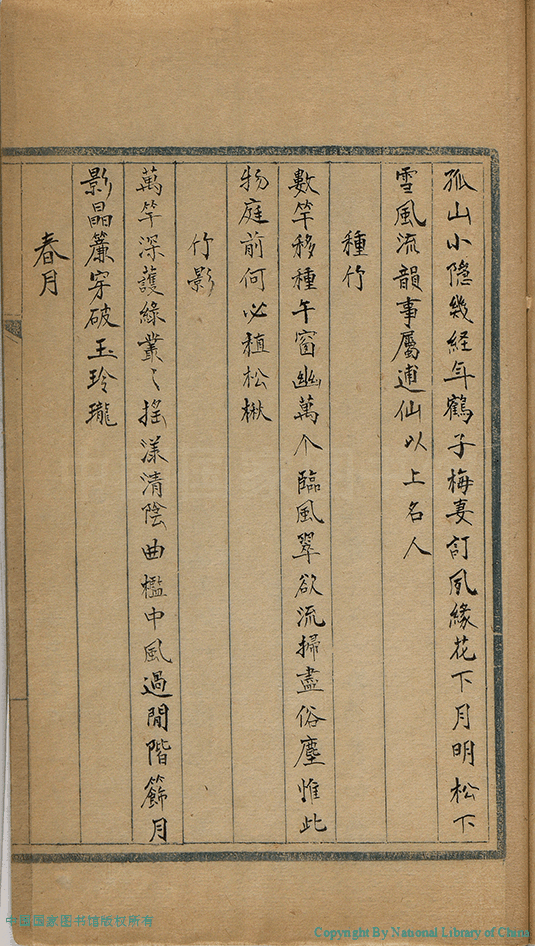 孤山小隐幾経年鶴子梅妻訂夙緣花下月明松下
雪風流韻事屬逋仙以上名人
種竹
數竿移種午窗幽萬个臨風翠欲流掃盡俗塵惟此
物庭前何必植松楸
竹影
萬竿深護綠叢〻搖漾清陰曲檻中風過閒階篩月
影晶簾穿破玉玲瓏
春月
中国国家图书馆版权所有
Copyright By National Library of China